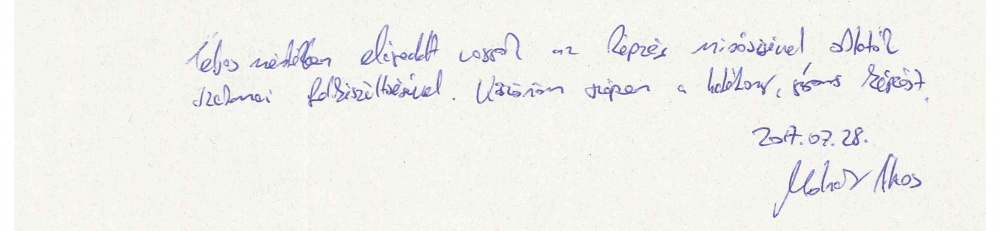 Teljes mértékben elégedett vagyok az képzés minőségével oktatók
szakmai felkészültségével. Köszönöm szépen a hatékony, képzést.
2017.07.28.
Ákos